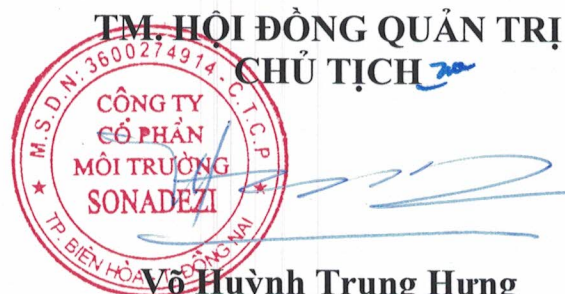 TM. HỘI ĐỒNG QUẢN TRỊ
CHỦ TỊCH
M.S.D.N: 3600274914 - C.T.C.P
CÔNG TY
CỔ PHẦN
MÔI TRƯỜNG
SONADEZI
TP. BIÊN HÒA - ĐỒNG NAI
Võ Huỳnh Trung Hưng